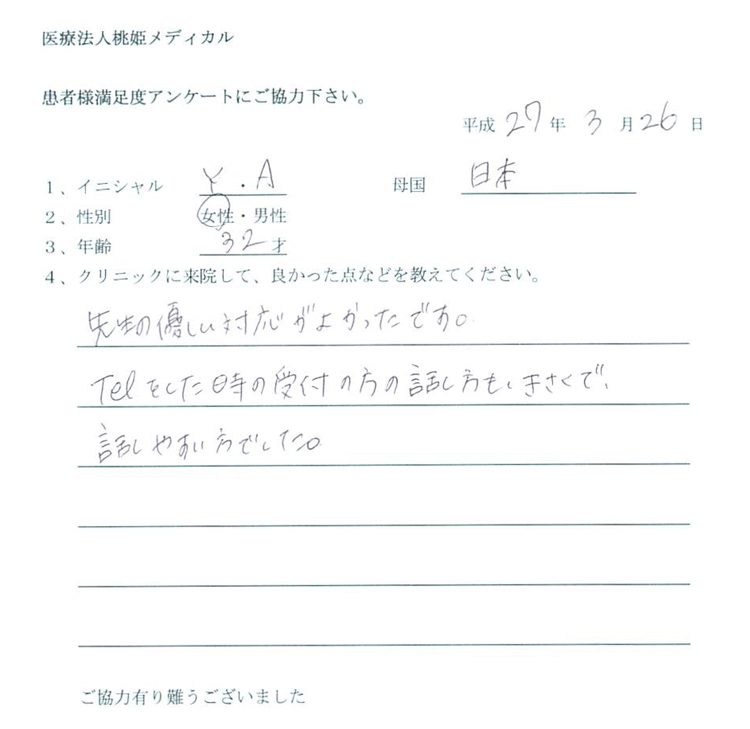 医療法人桃姫メディカル
患者様満足度アンケートにご協力下さい。
平成 27 年 3 月 26 日
1、イニシャル Y・A 母国 日本
2、性別 女性・男性
3、年齢 32才
4、クリニックに来院して、良かった点などを教えてください。
先生の優しい対応がよかったです。
Telをした時の受付の方の話し方も、きさくで、
話しやすい方でした。
ご協力有り難うございました